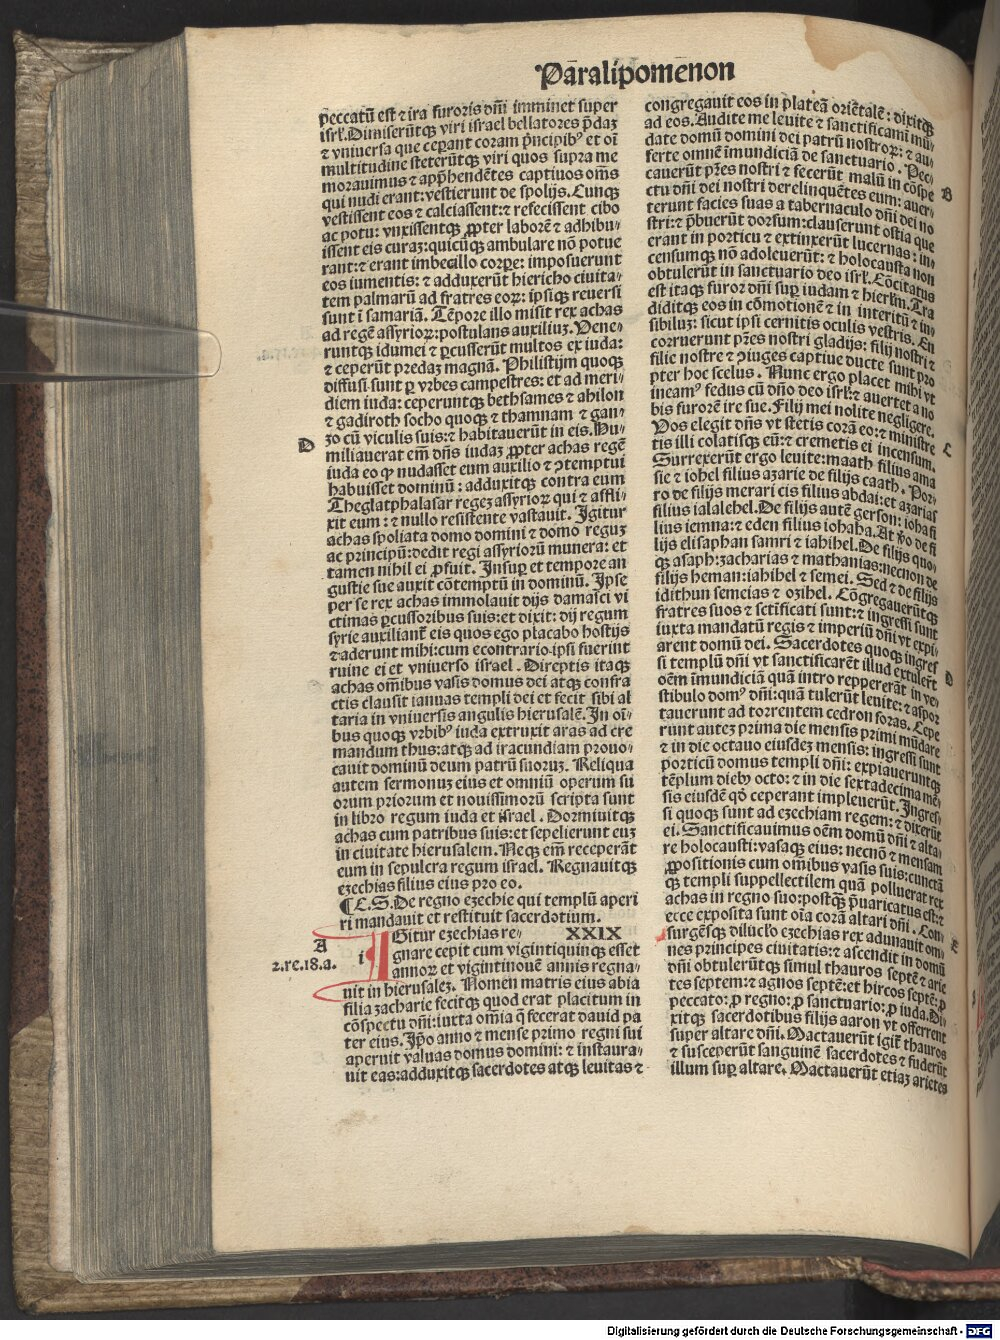 Paralipomenon
peccatū est ⁊ ira furoris dn̄i imminet super
isrl̄. Dimiserūtqꝫ viri israel bellatores p̄daꝫ
⁊ vniuersa que ceperant coram p̄ncipibꝰ et oī
multitudine steterūtqꝫ viri quos supra me
morauimus ⁊ app̄hendētes captiuos om̄s
qui nudi erant: vestierunt de spolijs. Cunqꝫ
vestissent eos ⁊ calciassent: ⁊ refecissent cibo
ac potu: vnxissentqꝫ ꝓpter laborē ⁊ adhibu-
issent eis curaꝫ: quicūqꝫ ambulare nō potue
rant: ⁊ erant imbecillo corꝑe: imposuerunt
eos iumentis: ⁊ adduxerūt hiericho ciuita-
tem palmarū ad fratres eoꝝ: ipsiqꝫ reuersi
sunt ī samariā. Tēpore illo misit rex achas
ad regē assyrioꝝ: postulans auxiliuꝫ. Vene-
runtqꝫ idumei ⁊ ꝑcusserūt multos ex iuda:
⁊ ceperūt predaꝫ magnā. Philistijm quoqꝫ
diffusi sunt ꝑ vrbes campestres: et ad meri-
diem iuda: ceperuntqꝫ bethsames ⁊ ahilon
⁊ gadiroth socho quoqꝫ ⁊ thamnam ⁊ gan-
D
zo cū viculis suis: ⁊ habitauerūt in eis. Hu-
miliauerat em̄ dn̄s iudaꝫ ꝓpter achas regē
iuda eo ꝙ nudasset eum auxilio ⁊ ꝯtemptui
habuisset dominū: adduxitqꝫ contra eum
Theglatphalasar regeꝫ assyrioꝝ qui ⁊ affli-
xit eum: ⁊ nullo resistente vastauit. Igitur
achas spoliata domo domini ⁊ domo reguꝫ
ac principū: dedit regi assyriorū munera: et
tamen nihil ei ꝓfuit. Insuꝑ et tempore an
gustie sue auxit cōtemptū in dominū. Ipse
per se rex achas immolauit dijs damasci vi
ctimas ꝑcussoribus suis: et dixit: dij regum
syrie auxiliant̄ eis quos ego placabo hostijs
⁊ aderunt mihi: cum econtrario ipsi fuerint
ruine ei et vniuerso israel. Direptis itaqꝫ
achas om̄ibus vasis domus dei atqꝫ confra
ctis clausit ianuas templi dei et fecit sibi al
taria in vniuersis angulis hierusalē. In oī-
bus quoqꝫ vrbibꝰ iuda extruxit aras ad cre
mandum thus: atqꝫ ad iracundiam prouo-
cauit dominū deum patrū suoruꝫ. Reliqua
autem sermonuꝫ eius et omniū operum su
orum priorum et nouissimorū scripta sunt
in libro regum iuda et israel. Dormiuitqꝫ
achas cum patribus suis: et sepelierunt euꝫ
in ciuitate hierusalem. Neqꝫ em̄ receperāt
eum in sepulcra regum israel. Regnauitqꝫ
ezechias filius eius pro eo.
¶ C.S. De regno ezechie qui templū aperi
ri mandauit et restituit sacerdotium.
A
2.re.18.a.
IGitur ezechias re- XXIX
gnare cepit cum vigintiquinqꝫ esset
annoꝝ et vigintinouē annis regna-
uit in hierusaleꝫ. Nomen matris eius abia
filia zacharie fecitqꝫ quod erat placitum in
cōspectu dn̄i: iuxta om̄ia ꝙ fecerat dauid pa
ter eius. Ip̄o anno ⁊ mense primo regni sui
aperuit valuas domus domini: ⁊ instaura-
uit eas: adduxitqꝫ sacerdotes atqꝫ leuitas ⁊
congregauit eos in plateā oriētalē: dixitqꝫ
ad eos. Audite me leuite ⁊ sanctificamī mū-
date domū domini dei patrū nostroꝝ: ⁊ au-
ferte omnē īmundiciā de sanctuario. Pec-
cauerūt pr̄es nostri ⁊ fecerūt malū in cōspe
B
ctu dn̄i dei nostri derelinquētes eum: auer-
terunt facies suas a tabernaculo dn̄i dei no
stri: ⁊ p̄buerūt dorsum: clauserunt ostia que
erant in porticu ⁊ extinxerūt lucernas: in-
censumqꝫ nō adoleuerūt: ⁊ holocausta non
obtulerūt in sanctuario deo isrl̄. Cōcitatus
est itaqꝫ furoꝛ dn̄i suꝑ iudam ⁊ hierl̄m. Tra
diditqꝫ eos in cōmotionē ⁊ in interitū ⁊ in-
sibiluꝫ: sicut ipsi cernitis oculis vestris. En
corruerunt pr̄es nostri gladijs: filij nostri ⁊
filie nostre ⁊ ꝯiuges captiue ducte sunt pro
pter hoc scelus. Nunc ergo placet mihi vt
ineamꝰ fedus cū dn̄o deo isrl̄: ⁊ auertet a no
bis furorē ire sue. Filij mei nolite negligere.
Vos elegit dn̄s vt stetis corā eo: ⁊ ministre
tis illi colatisqꝫ eū: ⁊ cremetis ei incensum.
C
Surrexerūt ergo leuite: maath filius ama
sie ⁊ iohel filius azarie de filijs caath. Por-
ro de filijs merari cis filius abdai: et azarias
filius ialalehel. De filijs autē gerson: ioha fi
lius iemna: ⁊ eden filius iohaha. At ꝟo de fi
lijs elisaphan samri ⁊ iahihel. De filijs quo-
qꝫ asaph: zacharias ⁊ mathanias: necnon de
filijs heman: iahihel ⁊ semei. Sed ⁊ de filijs
idithun semeias ⁊ ozihel. Cōgregauerūtqꝫ
fratres suos ⁊ sctificati sunt: ⁊ ingressi sunt
iuxta mandatū regis ⁊ imperiū dn̄i vt expi-
arent domū dei. Sacerdotes quoqꝫ ingres
si templū dn̄i vt sanctificarēt illud extulerūt
D
oēm īmundiciā quā intro reppererāt in ve-
stibulo domꝰ dn̄i: quā tulerūt leuite: ⁊ aspor
tauerunt ad torrentem cedron foras. Cepe
runt auteꝫ prima die mensis primi mūdare
⁊ in die octauo eiusdeꝫ mensis: ingressi sunt
porticū domus templi dn̄i: expiaueruntqꝫ
tēplum diebꝰ octo: ⁊ in die sextadecima mē-
sis eiusdē qd̄ ceperant impleuerūt. Ingres-
si quoqꝫ sunt ad ezechiam regem: ⁊ dixerūt
ei. Sanctificauimus oēm domū dn̄i ⁊ alta-
re holocausti: vasaqꝫ eius: necnō ⁊ mensam
ꝓpositionis cum om̄ibus vasis suis: cunctā
qꝫ templi suppellectilem quā polluerat rex
achas in regno suo: postqꝫ p̄uaricatus est: ⁊
ecce exposita sunt oīa corā altari dn̄i. Con-
E
surgēsqꝫ diluclo ezechias rex adunauit om-
nes principes ciuitatis: ⁊ ascendit in domū
dn̄i obtulerūtqꝫ simul thauros septē ⁊ arie
tes septem: ⁊ agnos septē: et hircos septē: ꝓ
peccato: ꝓ regno: ꝓ sanctuario: ꝓ iuda. Di-
xitqꝫ sacerdotibus filijs aaron vt offerrent
super altare dn̄i. Mactauerūt igit̄ thauros
⁊ susceperūt sanguinē sacerdotes ⁊ fuderūt
illum suꝑ altare. Mactauerūt etiaꝫ arietes
Digitalisierung gefördert durch die Deutsche Forschungsgemeinschaft - DFG